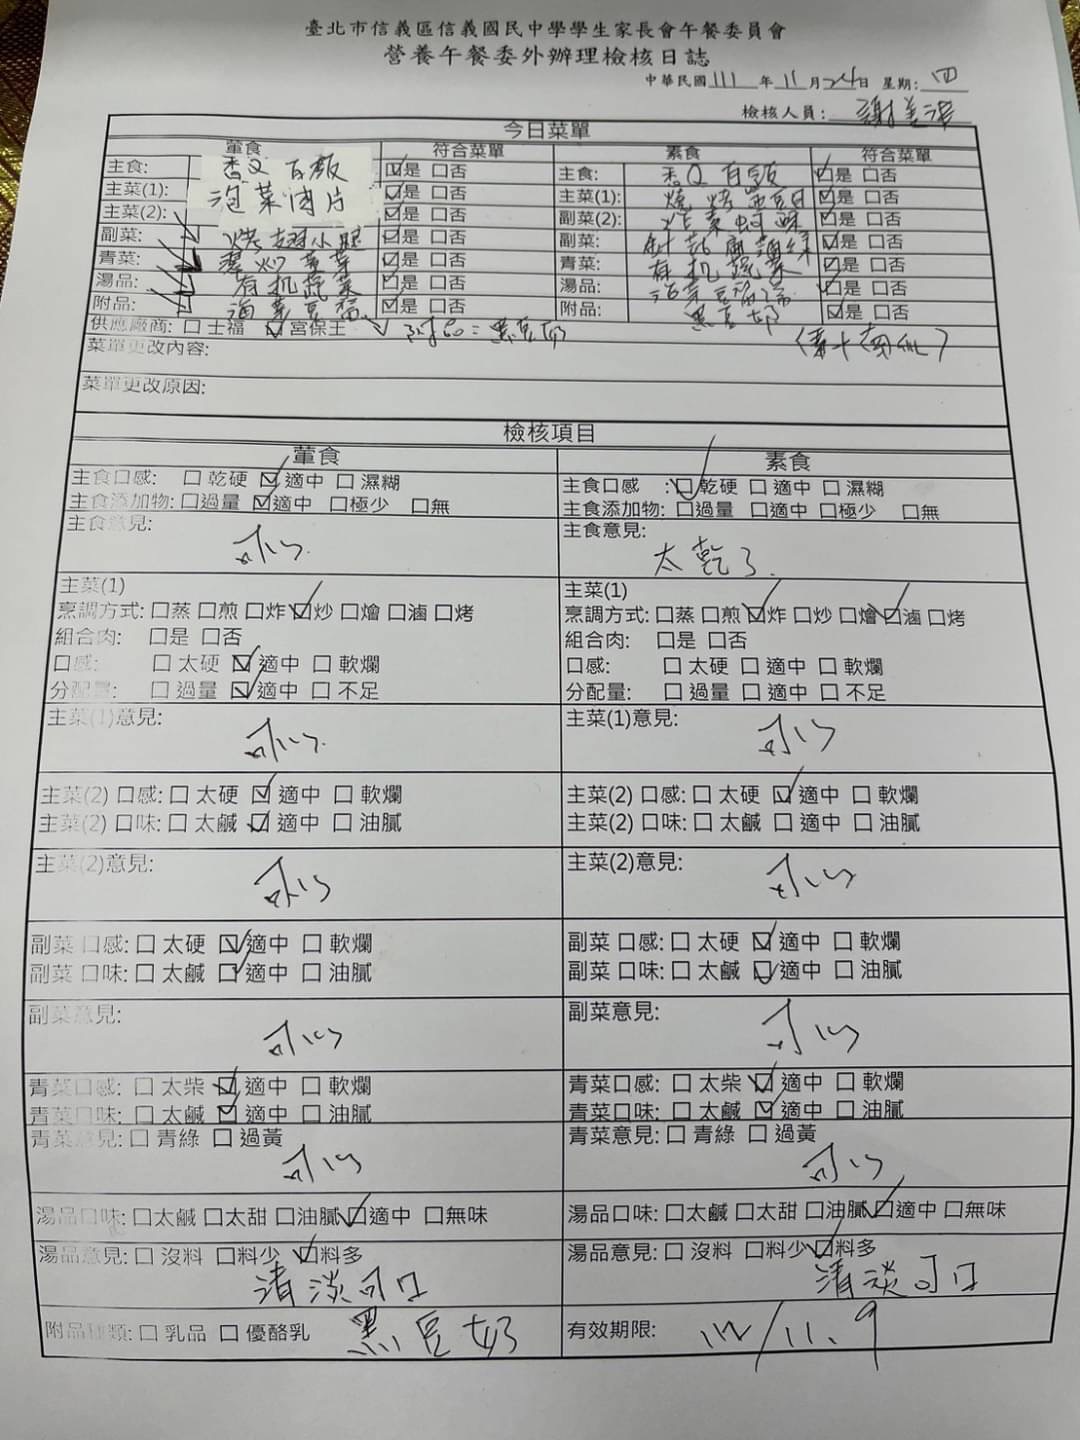 臺北市信義區信義國民中學學生家長會午餐委員會
營養午餐委外辦理檢核日誌
中華民國111年11月24日 星期:四
檢核人員:謝
今日菜單
葷食 符合菜單 素食 符合菜單
主食: 香Q白飯 ☑是 □否 主食: 香Q白飯 ☑是 □否
主菜(1): 泡菜肉片 ☑是 □否 主菜(1): 燒烤 ☑是 □否
主菜(2): ☑是 □否 副菜(2): 炸素蚵酥 ☑是 □否
副菜: 烤翅小腿 ☑是 □否 副菜: ☑是 □否
青菜: ☑是 □否 青菜: 有机蔬菜 ☑是 □否
湯品: 有机蔬菜 ☑是 □否 湯品: ☑是 □否
附品: 海芽豆腐 ☑是 □否 附品: 黑豆奶 ☑是 □否
供應廠商: □ 士福 ☑宮保王 ✓附品=黑豆奶
菜單更改內容:
菜單更改原因:
檢核項目
葷食 素食
主食口感: □ 乾硬 ☑ 適中 □ 濕糊 主食口感 :☑ 乾硬 □ 適中 □ 濕糊
主食添加物: □過量 ☑適中 □極少 □無 主食添加物: □過量 □適中 □極少 □無
主食意見: 可以. 主食意見: 太乾了.
主菜(1) 主菜(1)
烹調方式: □蒸 □煎 □炸 ☑炒 □燴 □滷 □烤 烹調方式: □蒸 □煎 ☑炸 □炒 □燴 ☑滷 □烤
組合肉: □是 □否 組合肉: □是 □否
口感: □ 太硬 ☑ 適中 □ 軟爛 口感: □ 太硬 □ 適中 □ 軟爛
分配量: □ 過量 ☑ 適中 □ 不足 分配量: □ 過量 □ 適中 □ 不足
主菜(1)意見: 可以. 主菜(1)意見: 可以
主菜(2) 口感: □ 太硬 ☑ 適中 □ 軟爛 主菜(2) 口感: □ 太硬 ☑ 適中 □ 軟爛
主菜(2) 口味: □ 太鹹 ☑ 適中 □ 油膩 主菜(2) 口味: □ 太鹹 □ 適中 □ 油膩
主菜(2)意見: 可以 主菜(2)意見: 可以
副菜 口感: □ 太硬 ☑ 適中 □ 軟爛 副菜 口感: □ 太硬 ☑ 適中 □ 軟爛
副菜 口味: □ 太鹹 ☑ 適中 □ 油膩 副菜 口味: □ 太鹹 ☑ 適中 □ 油膩
副菜意見: 可以 副菜意見: 可以
青菜口感: □ 太柴 ☑ 適中 □ 軟爛 青菜口感: □ 太柴 ☑ 適中 □ 軟爛
青菜口味: □ 太鹹 ☑ 適中 □ 油膩 青菜口味: □ 太鹹 ☑ 適中 □ 油膩
青菜意見: □ 青綠 □ 過黃 可以 青菜意見: □ 青綠 □ 過黃 可以
湯品口味: □太鹹 □太甜 □油膩 ☑適中 □無味 湯品口味: □太鹹 □太甜 □油膩 ☑適中 □無味
湯品意見: □ 沒料 □料少 ☑料多 清淡可口 湯品意見: □ 沒料 □料少 ☑料多 清淡可口
附品種類: □ 乳品 □ 優酪乳 黑豆奶 有效期限: 112/11.9